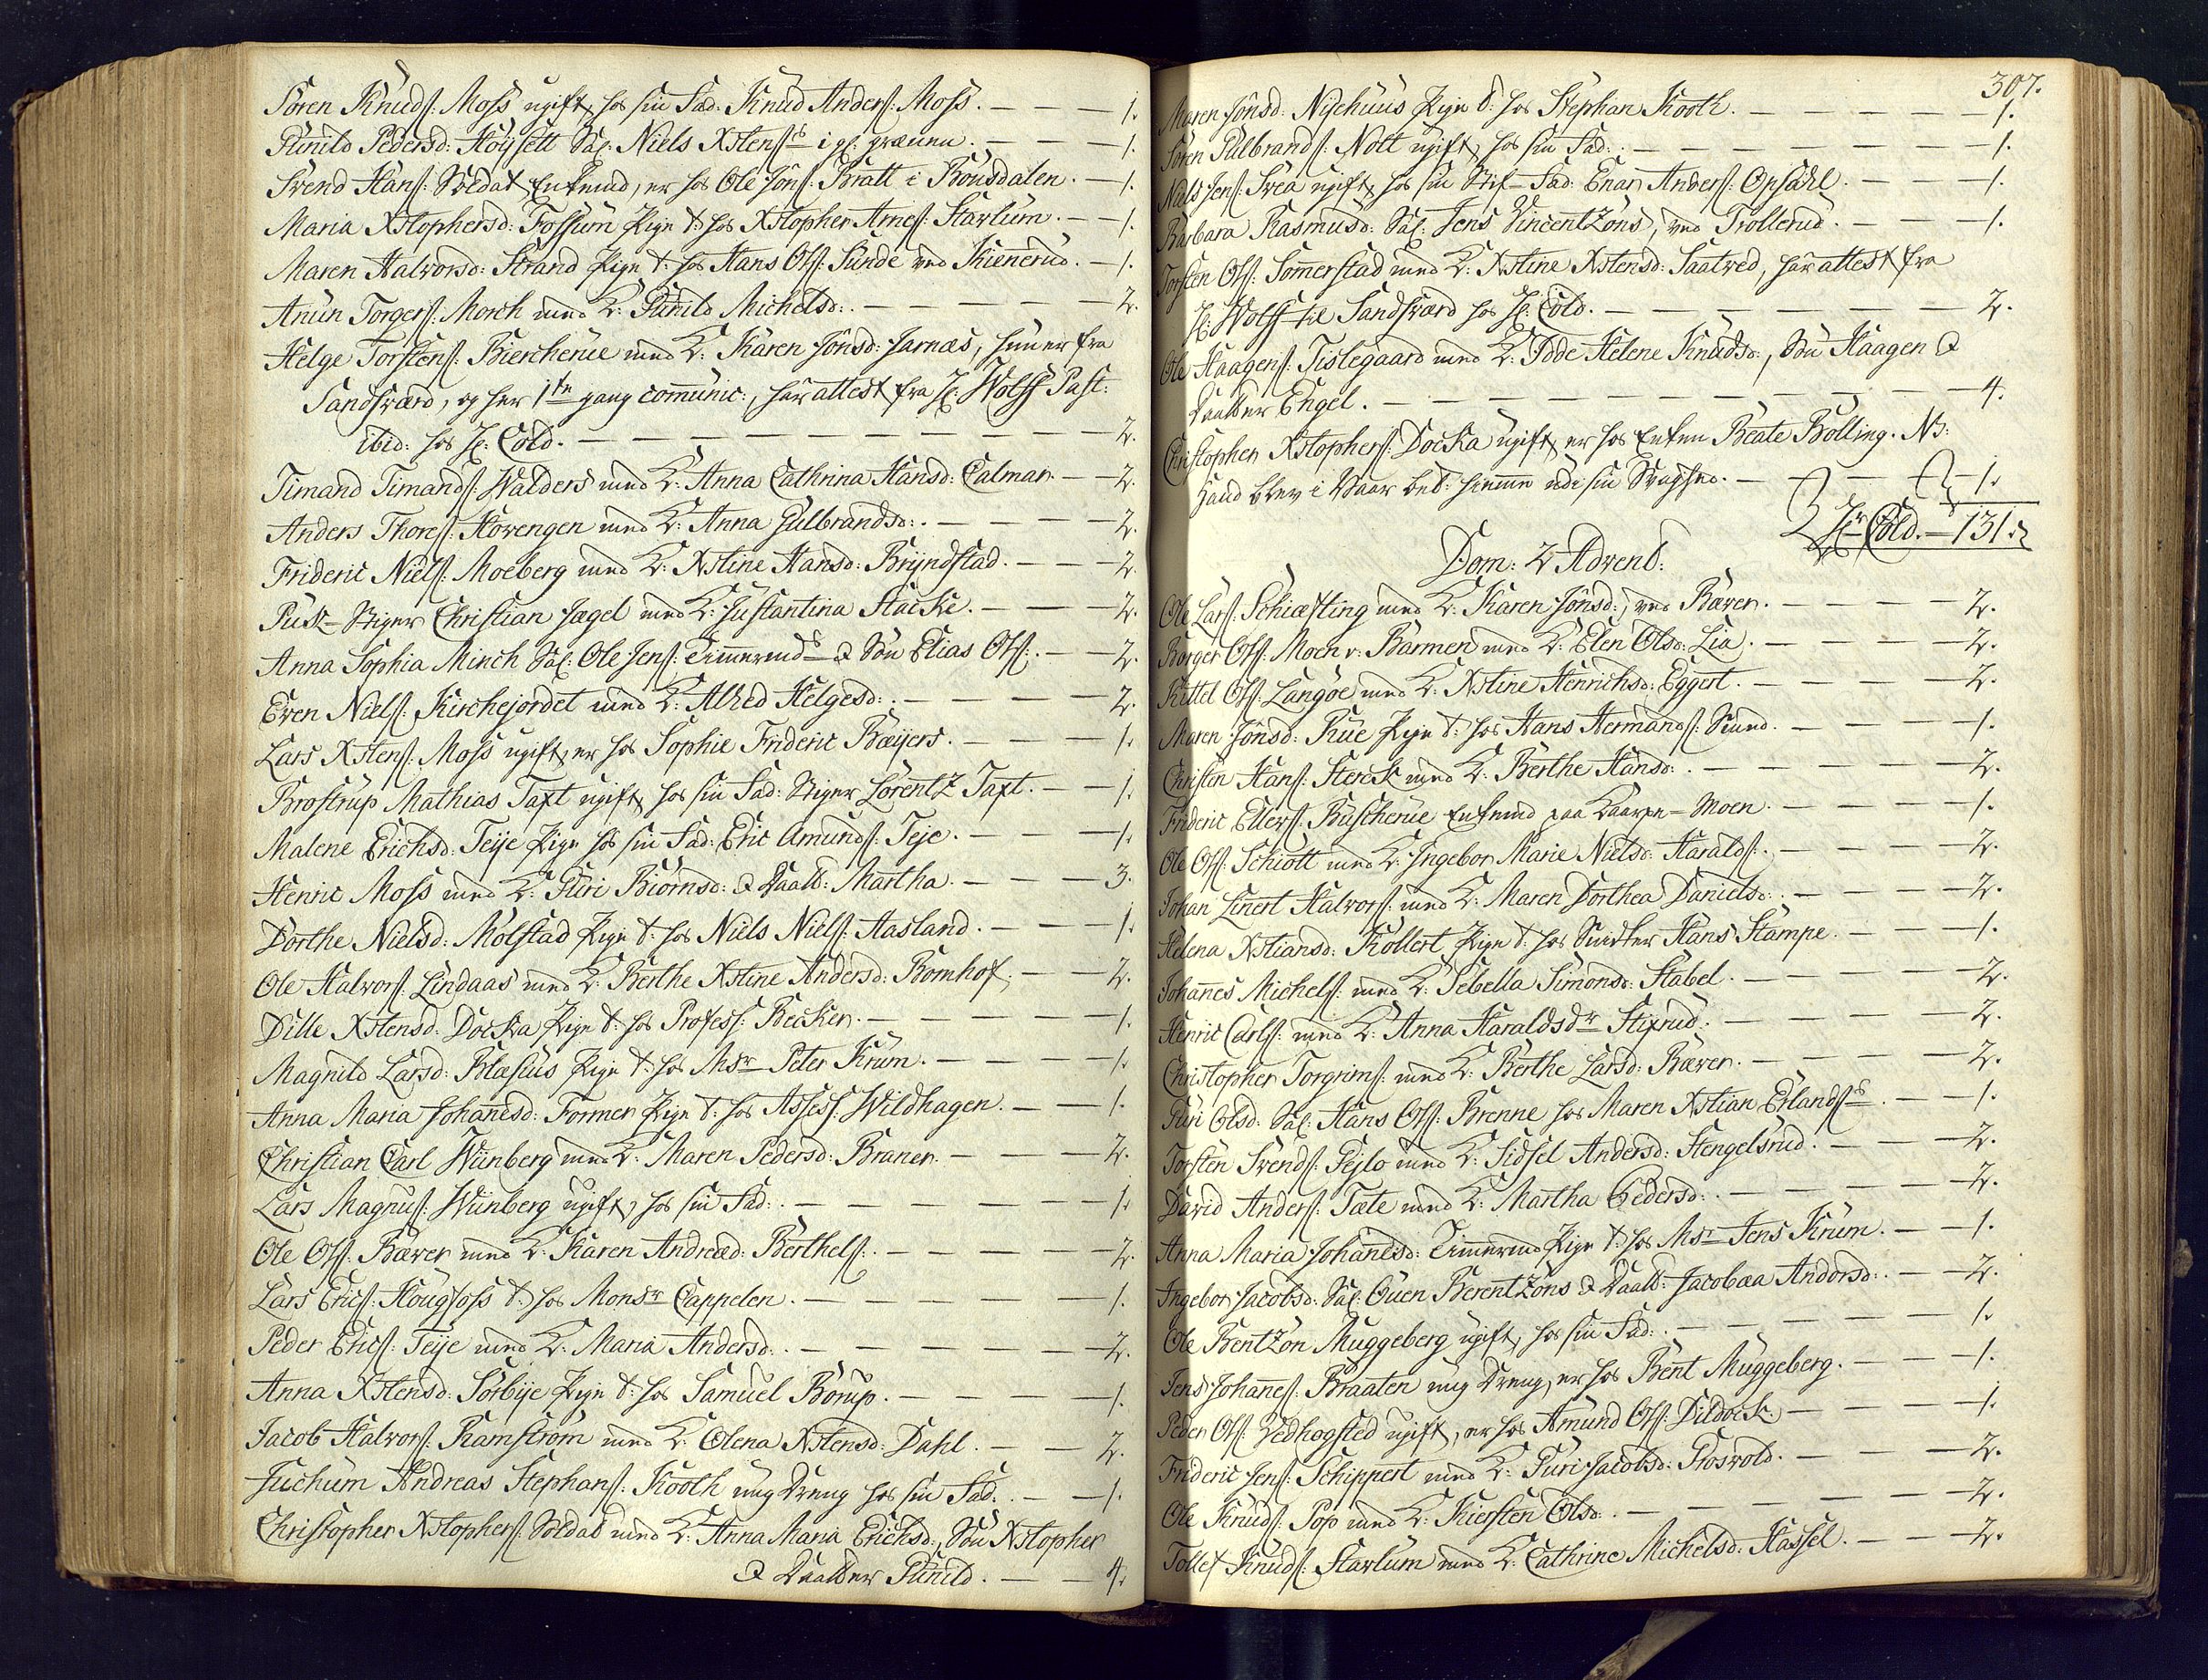 Sören Knuds: Moss ugift, hos sin Fad: Knud Anders: Moss. — — — 1.
Gunild Pedersd: Höysett Sal: Niels Xstens: i gl: — — — 1.
Svend Hans: Soldat Enkemd, er hos Ole Jöns: Bratt i Bönsdalen. — 1.
Maria Xstophersd: Fossum Pige t: hos Xstopher Arnes: Skarlum. — — 1.
Maren Halvorsd: Strand Pige t: hos Hans Ols: Sunde ved Kiennerud. — 1.
Anun Torgers: Morch med K: Gunild Michelsd: . — — — — — 2.
Helge Torstens: Biercherue med K: Karen Jönsd: Jarnæs, hun er fra
Sandsværd, og her 1ste gang communic:, har attest fra H: Wolff Past:
ibid: hos H: Cold. — — — — — — — — — — 2.
Timand Timands: Walders med K: Anna Cathrina Hansd: Calmar. — — 2.
Anders Thores: Hovengen med K: Anna Gulbrandsd: . — — — — 2.
Frideric Niels: Moeberg med K: Xstine Hansd: Bryndstad. — — — 2.
Puk-Stiger Christian Jægel med K: Justantina Stacke. — — — 2.
Anna Sophia Minch Sal: Ole Jens: Timmermds & Sön Elias Ols: . — — 2.
Even Niels: Kirchejordet med K: Alhed Helgesd: . — — — — 2.
Lars Xstens: Moss ugift, er hos Sophie Frideric Bæyers. — — — 1.
Brostrup Mathias Taxt ugift, hos sin Fad: Stiger Lorentz Taxt. — — 1.
Malene Erichsd: Teije Pige hos sin Fad: Eric Amunds: Teje. — — — 1.
Henric Moss med K: Guri Biörnsd: & Daatt: Martha. — — — 3.
Dorthe Nielsd: Mölstad Pige t: hos Niels Niels: Aasland. — — — 1.
Ole Halvors: Lindaas med K: Berthe Xstine Andersd: Bomhof. — — 2.
Dille Xstensd: Docka Pige t: hos Profess: Becker. — — — — 1.
Magnild Larsd: Blæsius Pige t: hos Msr Peter Krum. — — — — 1.
Anna Maria Johannesd: Former Pige t: hos Assess: Wildhagen. — — 1.
Christian Carl Wünberg med K: Maren Pedersd: Braner. — — — 2.
Lars Magnus: Wünberg ugift, hos sin Fad: . — — — — — — 1.
Ole Ols: Bæver med K: Karen Andreæd: Berthels: . — — — — 2.
Lars Erics: Hougfoss t: hos Monsr Cappelen. — — — — — 1.
Peder Erics: Teije med K: Maria Andersd: . — — — — — — 2.
Anna Xstensd: Sörbye Pige t: hos Samuel Börup. — — — — 1.
Jacob Halvors: Ramström med K: Olena Xstensd: Dahl. — — 2.
Juchum Andreas Stephans: Kooth ung Dreng hos sin Fad: . — — 1.
Christopher Xstophers: Soldat med K: Anna Maria Erichsd:, Sön Xstopher
& Daatter Gunild. — — 4.
307.
Maren Jönsd: Nyehuus Pige t: hos Stephan Kooth. — — — — — 1.
Sören Gulbrands: Nott ugift, hos sin Fad: . — — — — — — 1.
Niels Jens: Svea ugift, hos sin Stif-Fad: Enar Anders: Opsahl. — — — 1.
Barbara Rasmusd: Sal: Jens Vincentzöns, ved Trollerud. — — — 1.
Torsten Ols: Sommerstad med K: Xstine Xstensd: Saatved, har attest fra
H: Wolff til Sandsværd hos H: Cold. — — — — — — — 2.
Ole Haagens: Tislegaard med K: Odde Helene Knudsd:, Sön Haagen &
Daatter Engel. — — — — — — — — — — 4.
Christopher Xstophers: Docka ugift, er hos Enken Beate Bolling. NB:
hand blev i Vaar bet: hiemme udi sin Svaghed. — — — 1.
Hr Cold. — 131.
Dom: 2 Advent:
Ole Lars: Schiæsting med K: Karen Jönsd:, ved Bæver. — — — — 2.
Börger Ols: Moen v: Barmen med K: Elen Olsd: Lia. — — — — 2.
Kittel Ols: Langöe med K: Xstine Henrichsd: Eggert. — — — — 2.
Maren Jönsd: Rue Pige t: hos Hans Hermands: Smed. — — — — 1.
Christen Hans: Sterck med K: Berthe Hansd: . — — — — — 2.
Frideric Ellers: Buscherue Enkemd paa — Moen. — — — — 1.
Ole Ols: Schiött med K: Ingebor Marie Nielsd: Haralds: . — — — 2.
Johan Linert Halvors: med K: Maren Dorthea Danielsd: . — — — 2.
Helena Xstiansd: Kollert Pige t: hos Smelter Hans Stampe. — — — 1.
Johannes Michels: med K: Sebella Simonsd: Stabel. — — — — 2.
Henric Carls: med K: Anna Haraldsdr Stixrud: — — — — — 2.
Christopher Torgrims: med K: Berthe Larsd: Bæver. — — — — 2.
Guri Olsd: Sal: Hans Ols: Brenne hos Maren Xstian Erlands: . — — 1.
Torsten Svends: Gejlo med K: Sidsel Andersd: Stengelsrud. — — — 2.
David Anders: Tæte med K: Martha Pedersd: . — — — — — 2.
Anna Maria Johannesd: Timmermd Pige t: hos Msr Jens Krum. — — 1.
Ingebor Jacobsd: Sal: Ouen Berentzöns & Daatt: Jacobæa Andorsd: . — — 2.
Ole Bentzön Muggeberg ugift, hos sin Fad: . — — — — — 1.
Jens Johannes: Braaten ung Dreng, er hos Bent Muggeberg. — — — 1.
Peder Ols: Hedhogsted ugift, er hos Amund Ols: Dildock. — — — — 1.
Frideric Jens: Schippert med K: Guri Jacobsd: Goswold. — — — — 2.
Ole Knuds: Pop med K: Kiersten Olsd: . — — — — — — 2.
Tollef Knuds: Skarlum med K: Cathrine Michelsd: Hassel. — — — 2.